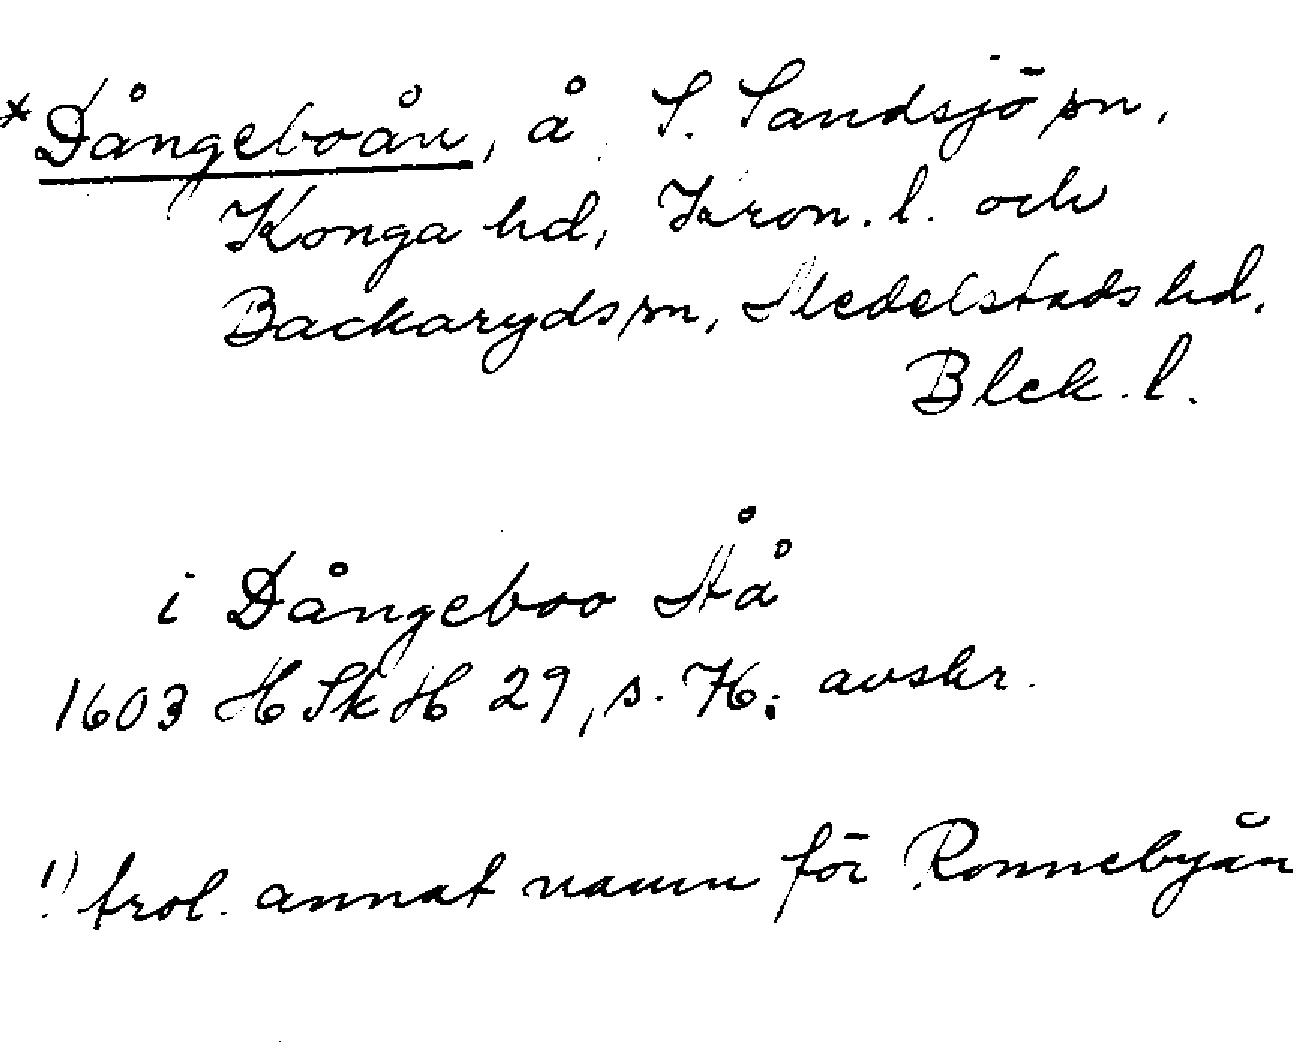 *Dångeboån, å, S. Sandsjö sn,
Konga hd, Kron. l. och
Backaryds sn, Medelstads hd,
Blek. l.
i Dångeboo Åå
1603 HSkH 29, s. 76; avskr.
1) trol. annat namn för Ronnebyån